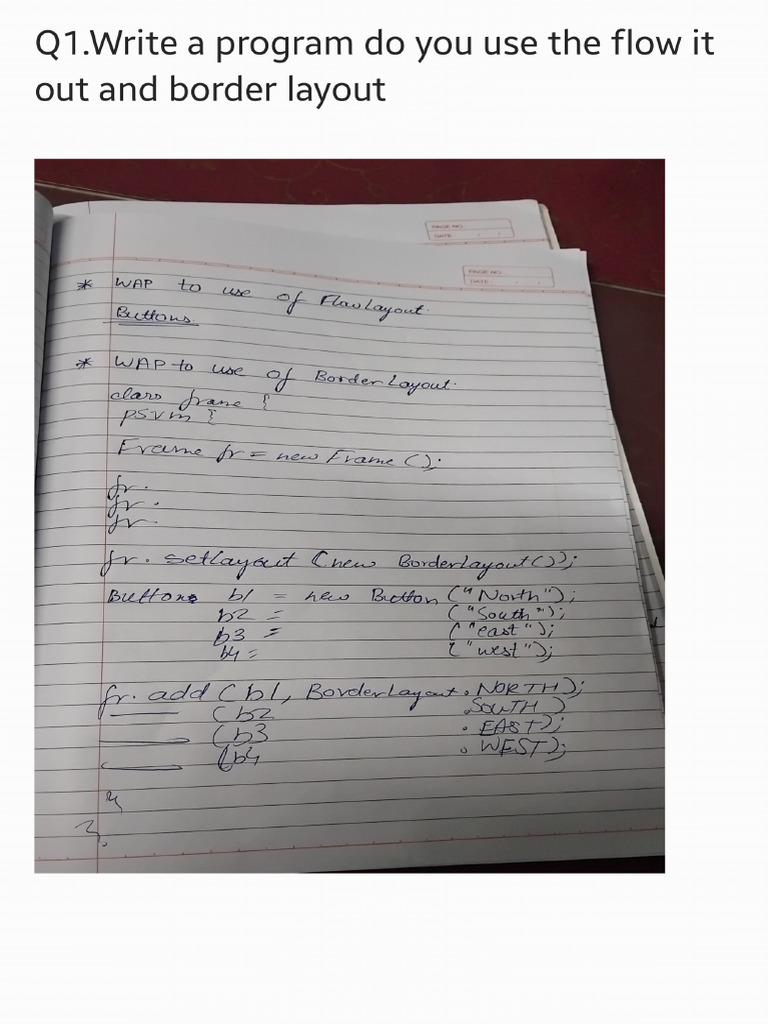 Q1.Write a program do you use the flow it
out and border layout
PAGE NO.
DATE: / /
PAGE NO.
DATE: / /
* WAP to use of FlowLayout.
Buttons.
* WAP to use of Border Layout.
class frame {
psvm {
Frame fr = new Frame ();
fr.
fr.
fr.
fr. setlayout (new BorderLayout());
Buttons b1 = new Button ("North");
b2 = ("South");
b3 = ("east");
b4 = ("west");
fr. add (b1, BorderLayout.NORTH);
(b2 .SOUTH)
(b3 . EAST);
(b4 . WEST);
}
}.